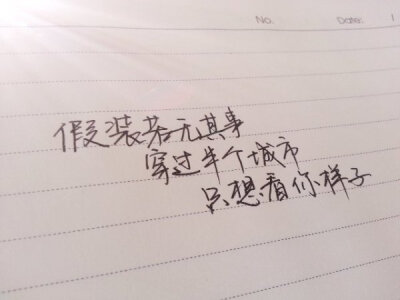 No. Date:
假装若无其事
穿过半个城市
只想看你样子